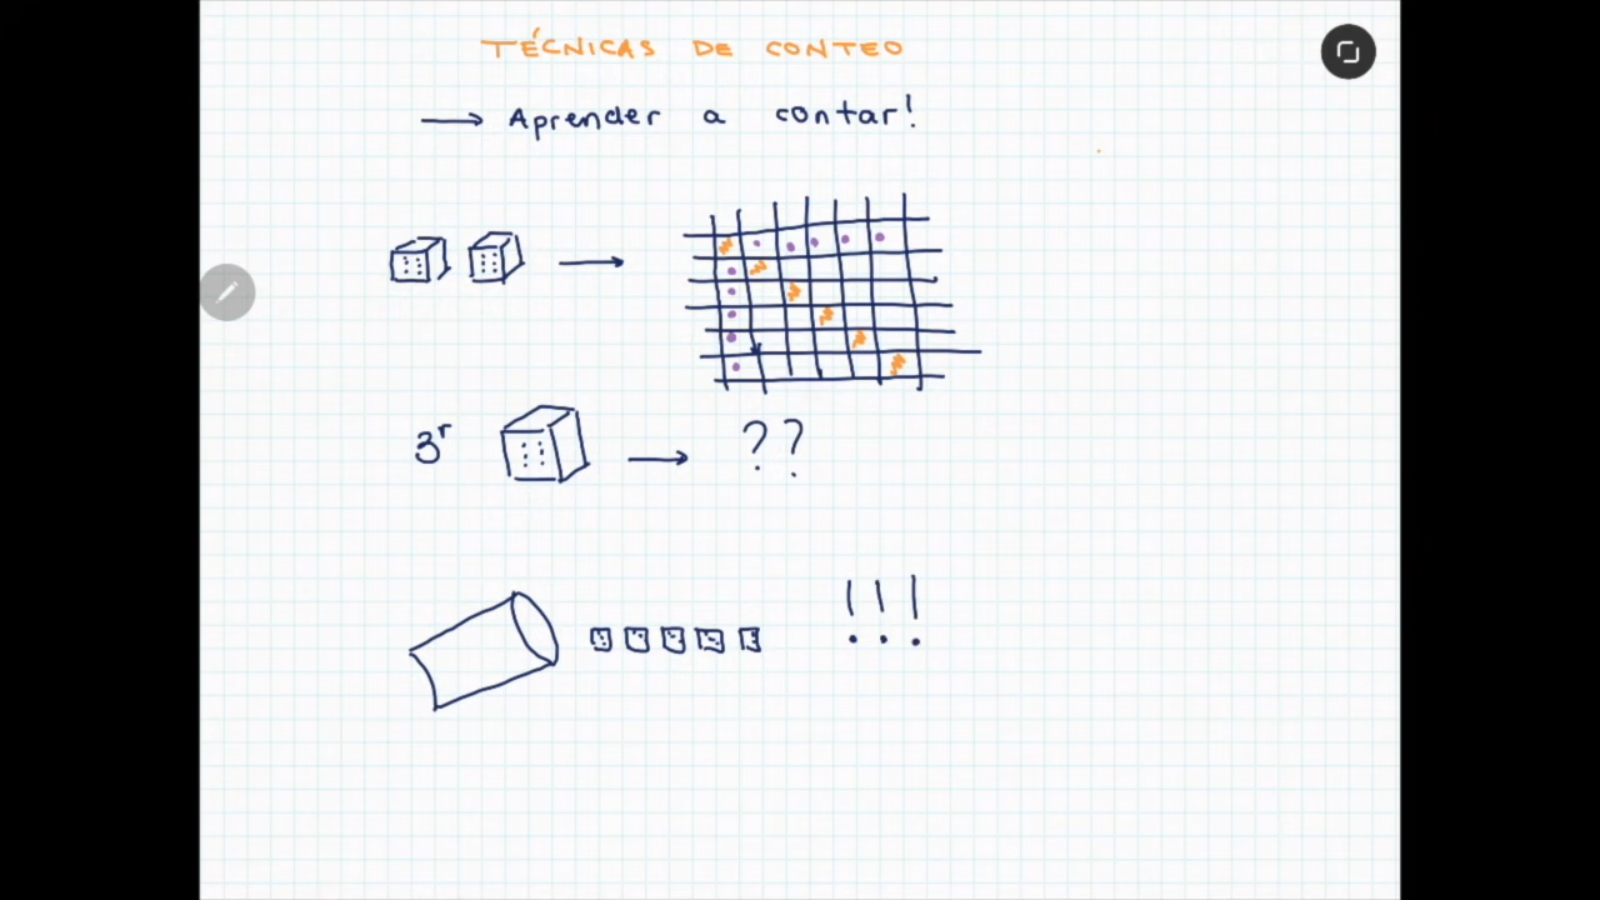 TÉCNICAS DE CONTEO
→ Aprender a contar!
→
3r → ??
!!!